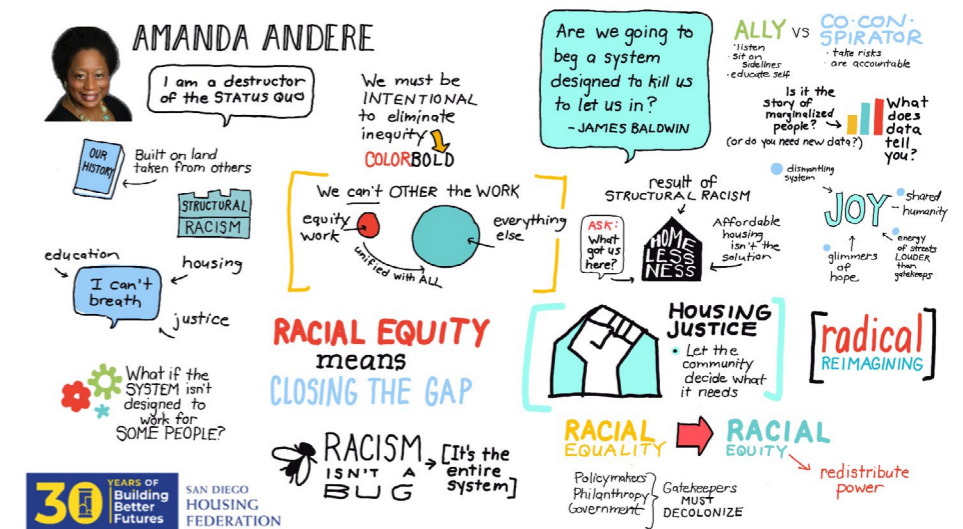 AMANDA ANDERE
I am a destructor
of the STATUS QUO
OUR
HISTORY
Built on land
taken from others
STRUCTURAL
RACISM
education
housing
I can't
breath
justice
What if the
SYSTEM isn't
designed to
work for
SOME PEOPLE?
30 YEARS OF
Building
Better
Futures
SAN DIEGO
HOUSING
FEDERATION
We must be
INTENTIONAL
to eliminate
inequity
COLORBOLD
We can't OTHER the WORK
equity
work
everything
else
unified with ALL
RACIAL EQUITY
means
CLOSING THE GAP
RACISM
ISN'T A
BUG
[It's the
entire
system]
Are we going to
beg a system
designed to kill us
to let us in?
- JAMES BALDWIN
result of
STRUCTURAL RACISM
ASK:
What
got us
here?
HOME
LESS
NESS
Affordable
housing
isn't the
solution
HOUSING
JUSTICE
• Let the
community
decide what
it needs
RACIAL
EQUALITY
RACIAL
EQUITY
redistribute
power
Policymakers
Philanthropy
Government
Gatekeepers
MUST
DECOLONIZE
ALLY vs CO·CON·
SPIRATOR
· listen
· sit on
sidelines
· educate self
· take risks
· are accountable
Is it the
story of
marginalized
people?
(or do you need new data?)
What
does
data
tell
you?
dismantling
system
JOY
shared
humanity
glimmers
of
hope
energy
of streets
LOUDER
than
gatekeeps
[radical
REIMAGINING]